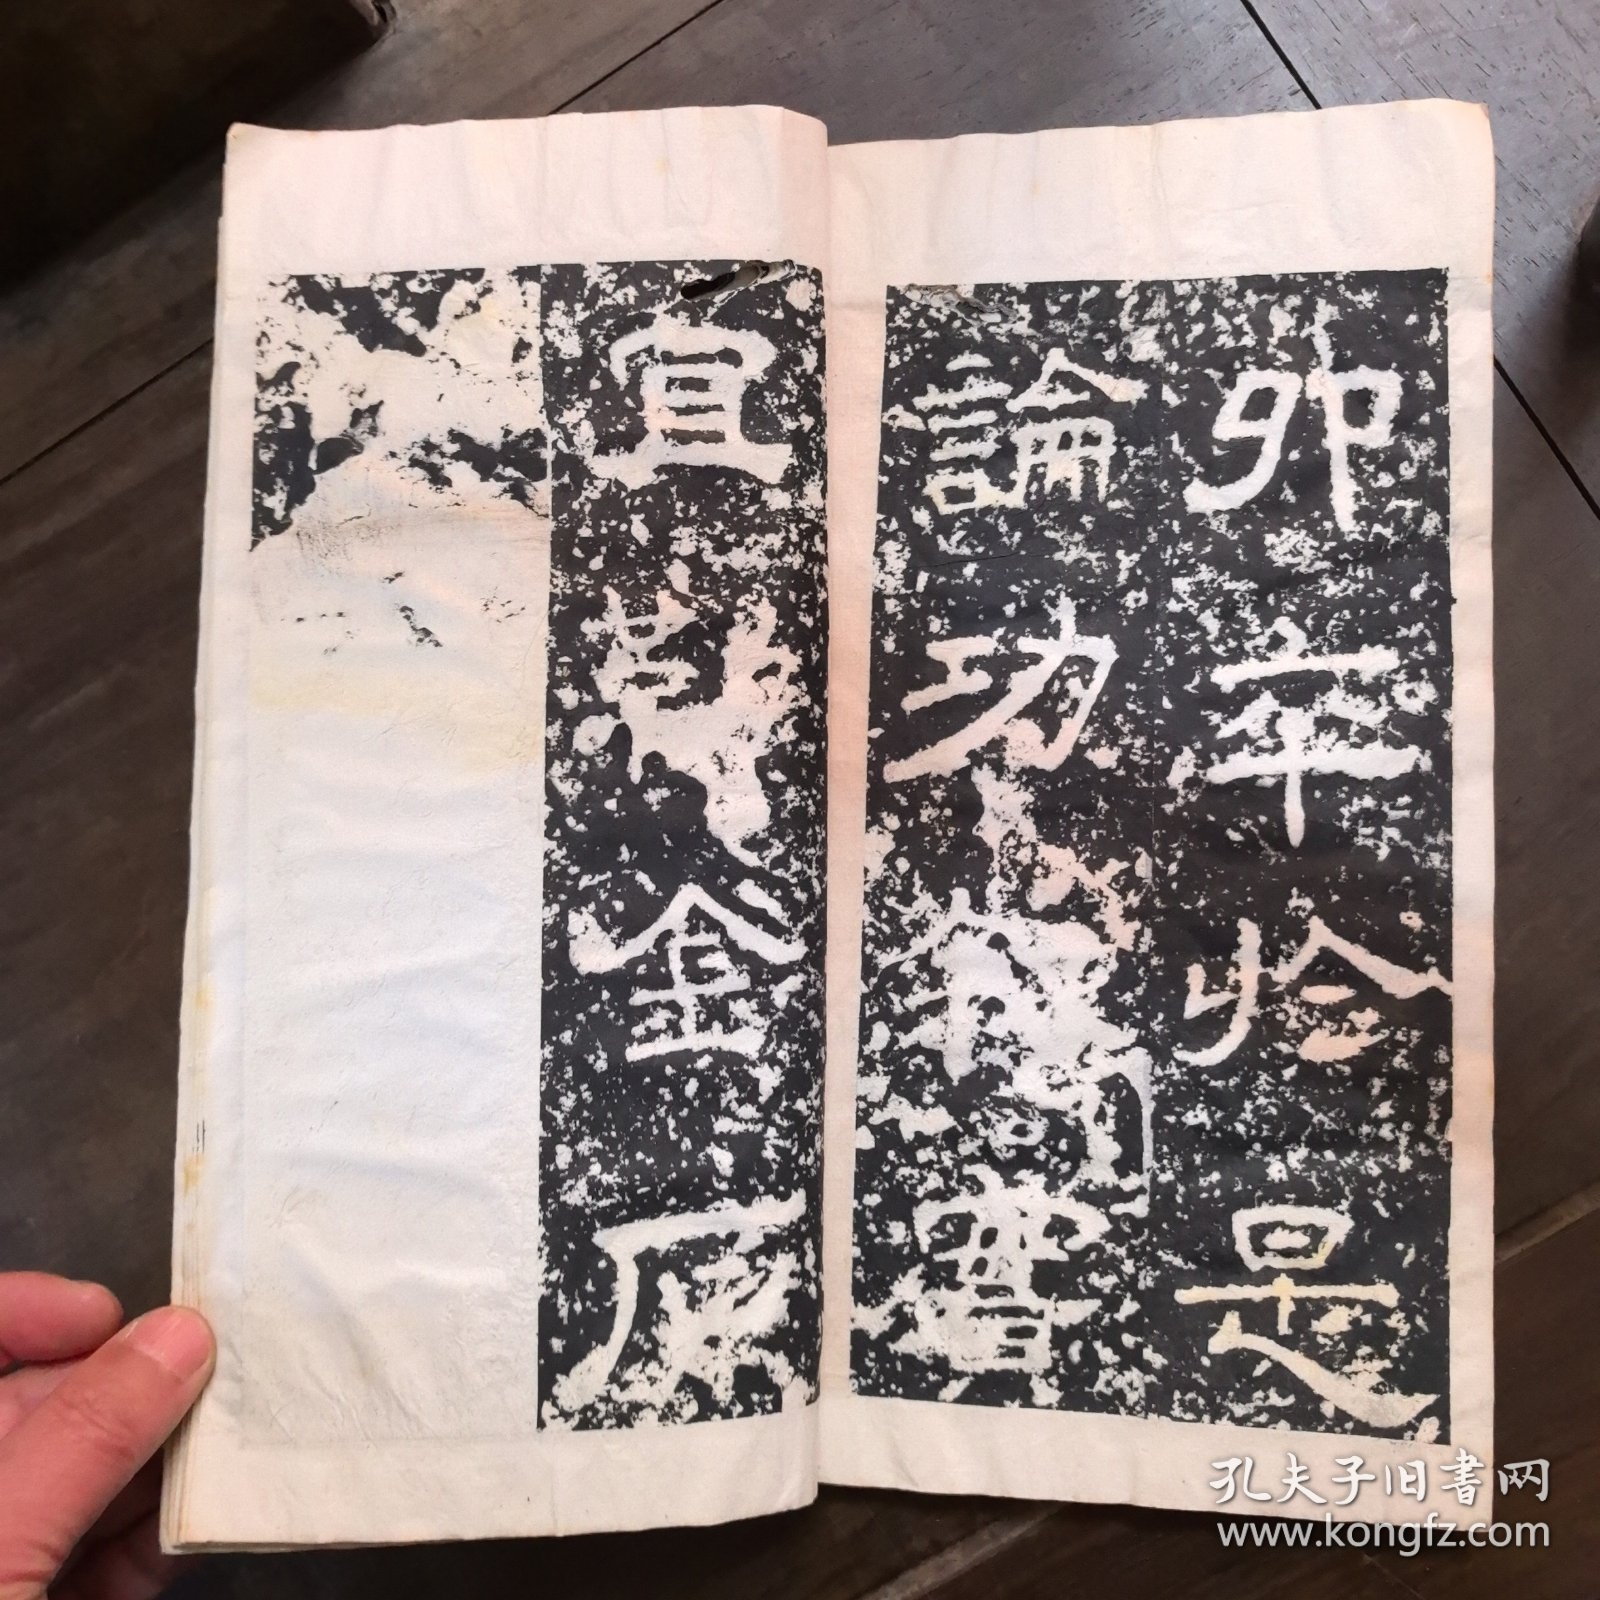 卯卒於是
論功
宜勒金
孔夫子旧书网
www.kongfz.com